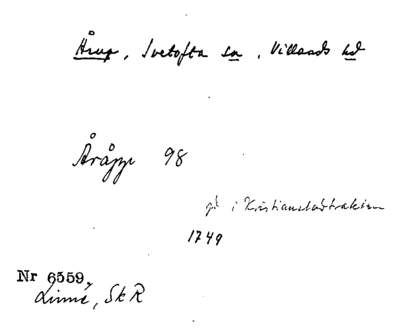 Årup, Ivetofta sn, Villands hd
Åråpp 98
gd i Kristianstadtrakten
1749
Nr 6559.
Linné, Sk R